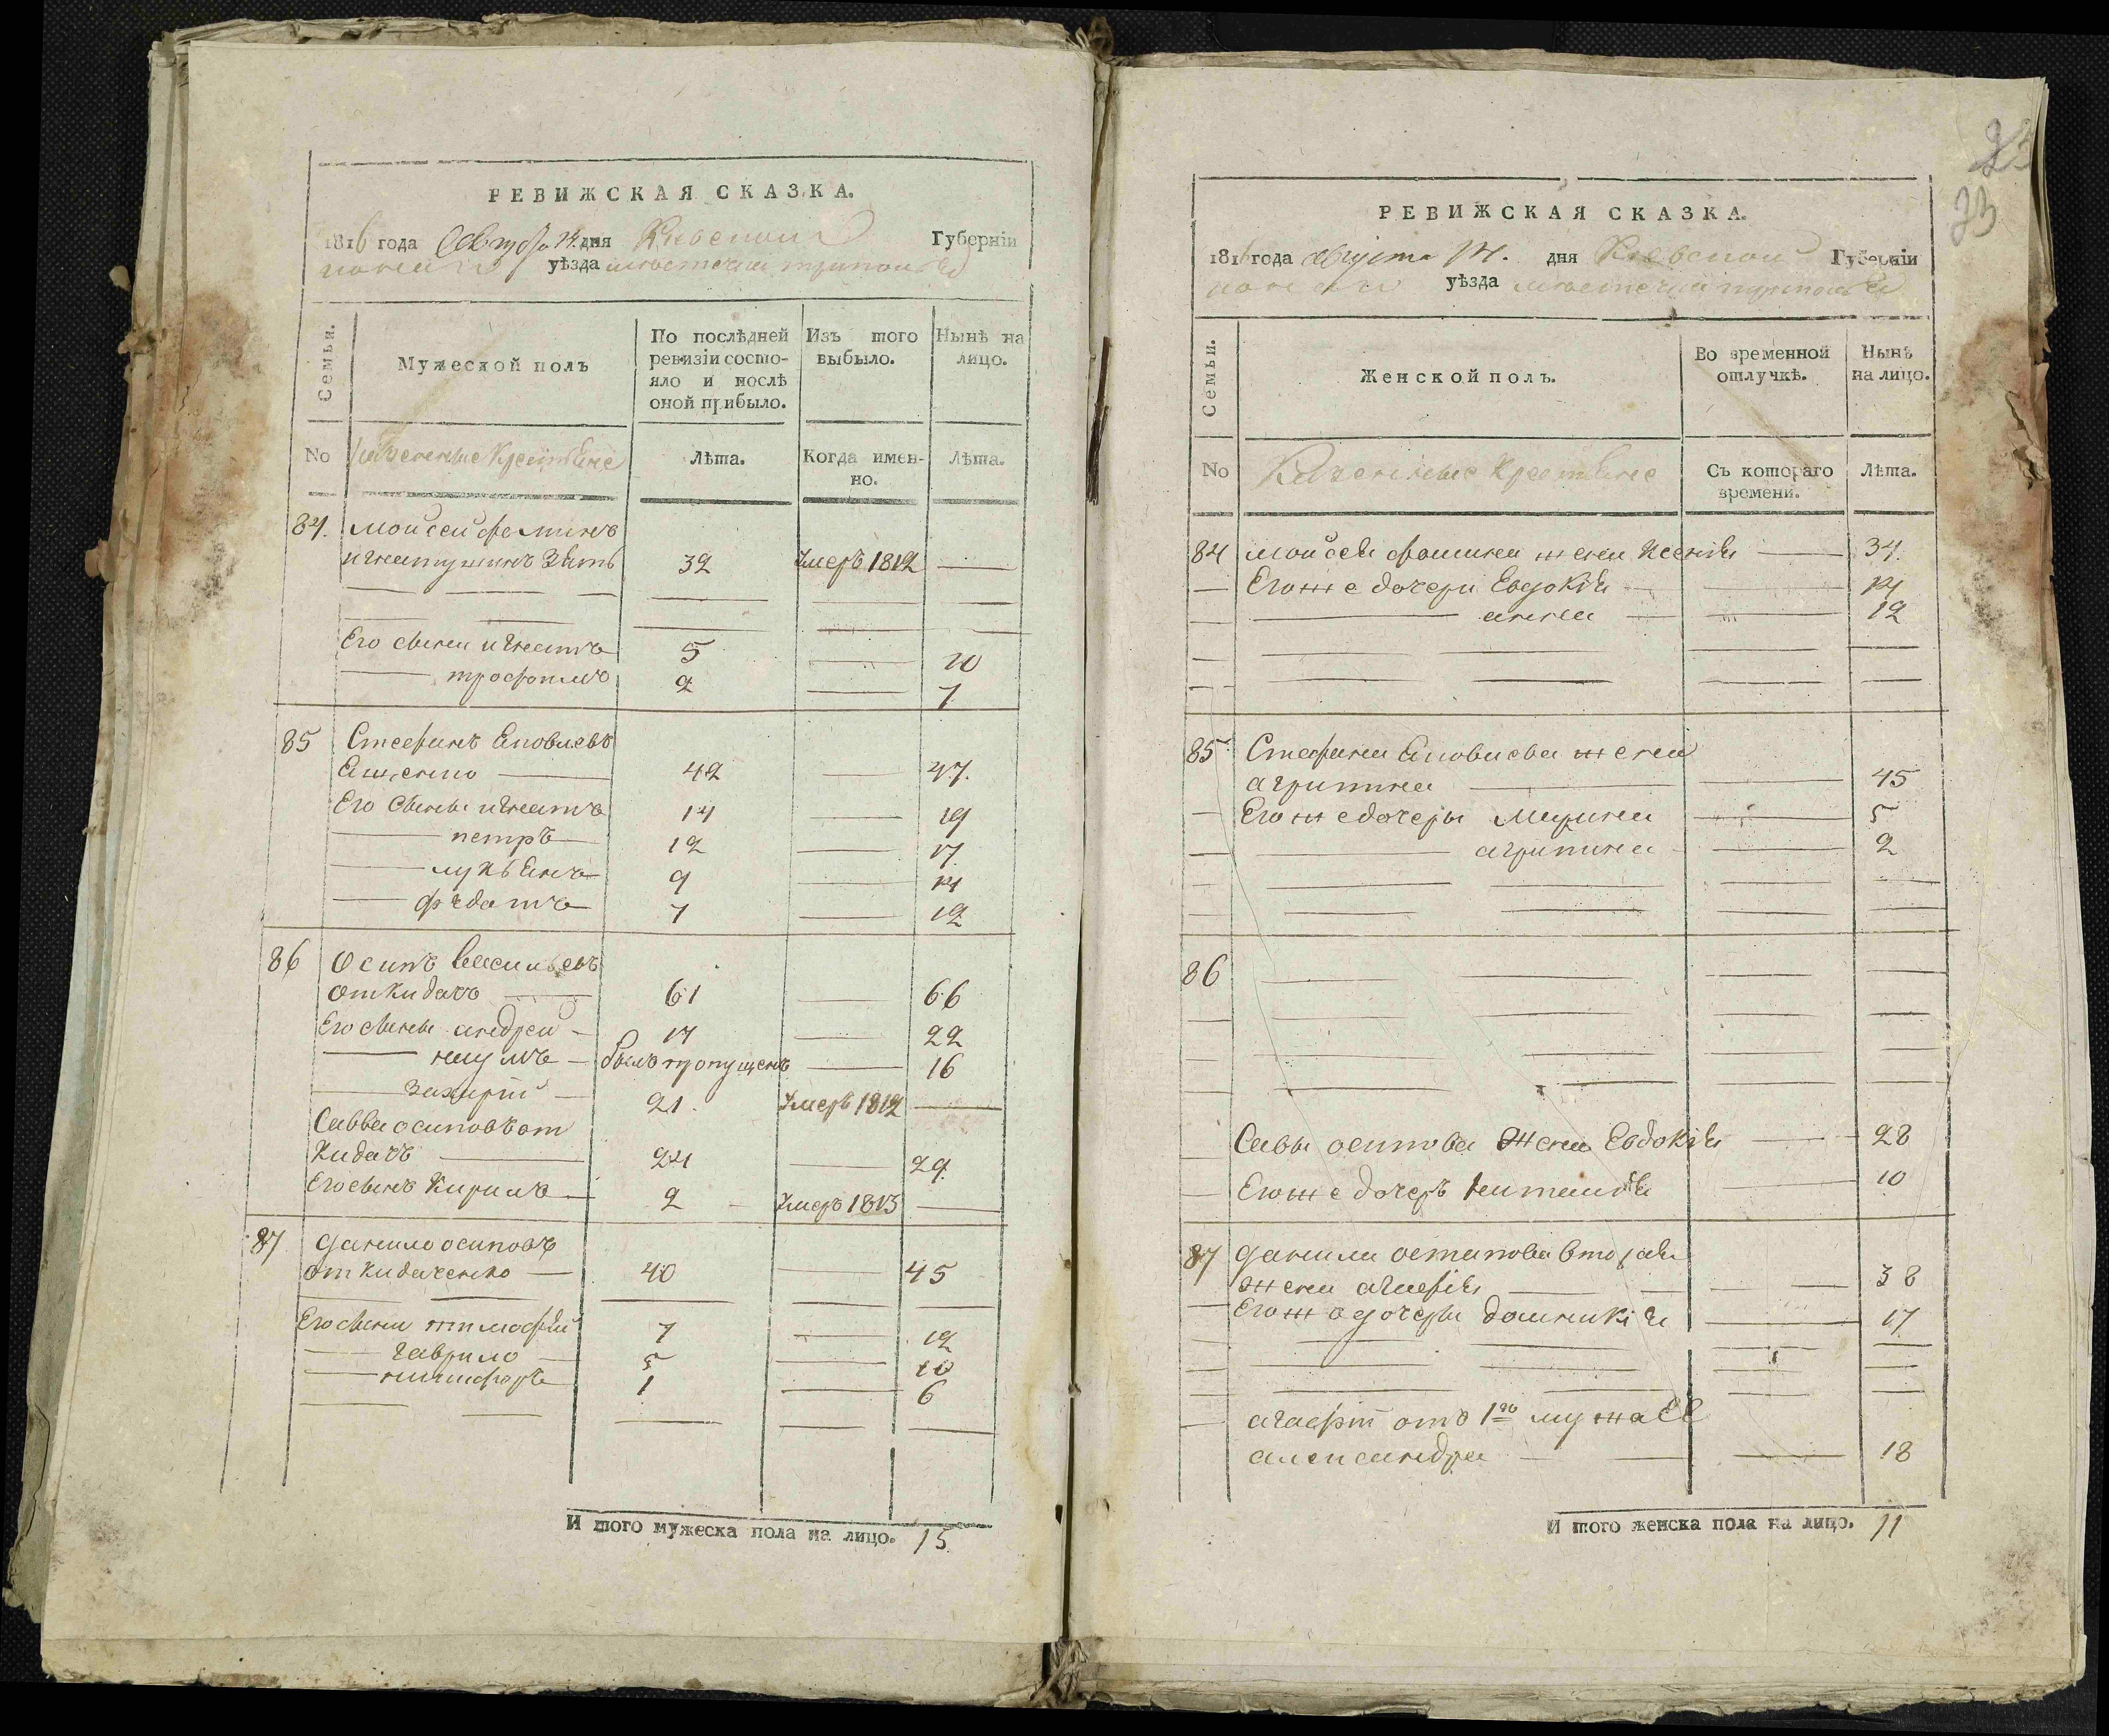 РЕВИЖСКАЯ СКАЗКА.
1816 года дня Киевской Губерніи
уѣзда местечка триполья
Семьи.
Мужеской полъ
По послѣдней ревизіи состо-
яло и послѣ
оной прибыло.
Изъ того
выбыло.
Нынѣ на
лицо.
No Казенные Крестьяне Лѣта. Когда имен-
но. Лѣта.
84. моисей фоминъ
игнатушинъ зять 32 умеръ 1812
Его сыни игнатъ 5 10
трофимъ 2 7
85 Стефанъ Яковлевъ
Ященко 42 47.
Его сыны игнатъ 14 19
петръ 12 17.
лукьянъ 9 14
федотъ 7 12
86 Осипъ васильевъ
откидачъ 61 66
Его сыны андрей 17 22
наумъ былъ пропущенъ 16
захарій 21. умеръ 1812
Савва осиповъ от
кидачъ 24 29.
Его сынъ Кирилъ 2 умеръ 1813
87 данило осиповъ
откидаченко 40 45
Его сыни тимофей 7 12
гаврило 5 10
никифоръ 1 6
И того мужеска пола на лицо. 15
23
23
РЕВИЖСКАЯ СКАЗКА.
1816 года августа 14. дня Киевской Губерніи
уѣзда местечка триполья
Семьи.
Женской полъ.
Во временной
отлучкѣ.
Нынѣ
на лицо.
No Казенные Крестьяне Съ котораго
времени. Лѣта.
84 моисея фомина жена Ксения 34.
Его же дочери Евдокія 14
анна 12
85 Стефана Яковлева жена
агрипина 45
Его же дочеры Марина 5
агрипина 2
86
Савы осипова жена Евдокія 28
Его же дочеръ 10
87 данила остапова вторая
жена агафія 38
Его же дочеры домникія 17
агафіи отъ 1го мужа
александра 18
И того женска пола на лицо. 11